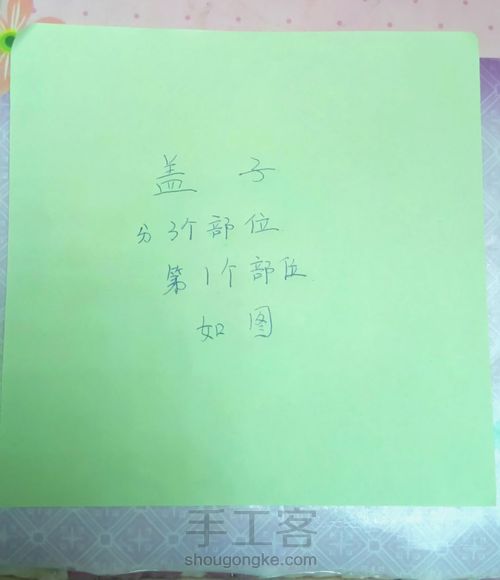 盖子
分3个部位
第1个部位
如图
手工客
shougongke.com